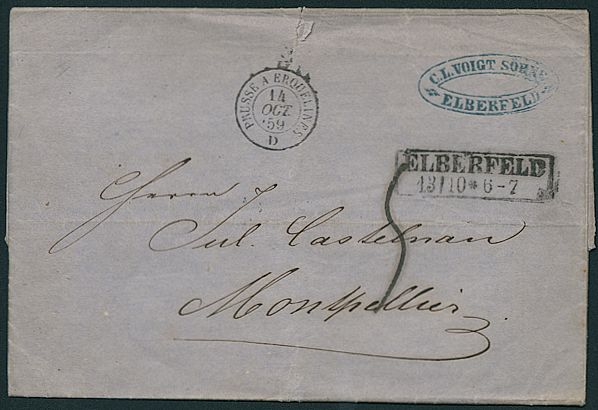 C.L.VOIGT SÖHNE
ELBERFELD
PRUSSE A ERQUELINES
14
OCT.
59
D
ELBERFELD
13/10 * 6-7
5
Herrn
Jul. Castelnau
Montpellier